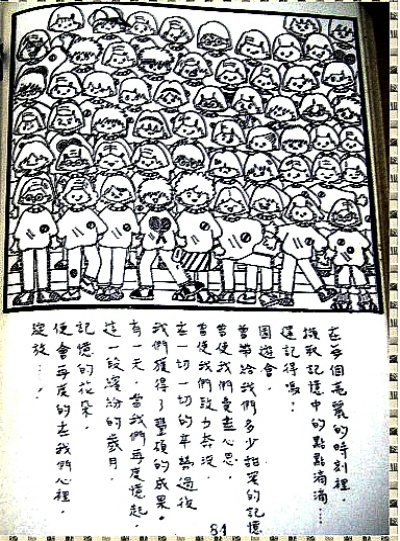 在多個亮麗的時刻裡，
擷取記憶中的點點滴滴……
還記得嗎？
園遊會，
曾帶給我們多少甜蜜的記憶
曾使我們費盡心思，
曾使我們致力甚深，
在一切一切的辛勞過後
我們獲得了豐碩的成果。
有一天，當我們再度憶起，
這一段繽紛的歲月，
記憶的花朵，
便會再度的在我們心裡，
綻放……！
84